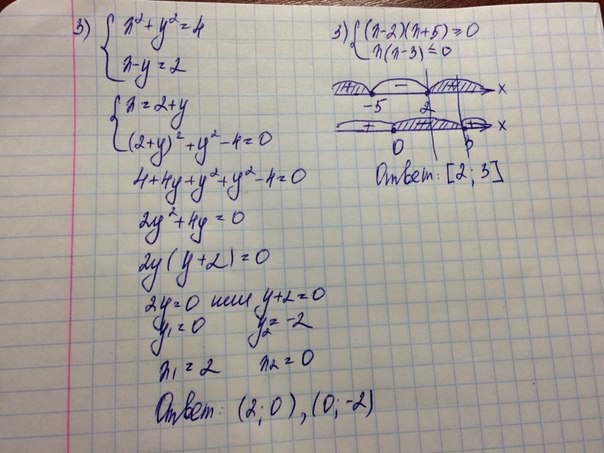 3) { x² + y² = 4
x - y = 2
{ x = 2 + y
(2+y)² + y² - 4 = 0
4 + 4y + y² + y² - 4 = 0
2y² + 4y = 0
2y (y + 2) = 0
2y = 0 или y + 2 = 0
y₁ = 0 y₂ = -2
x₁ = 2 x₂ = 0
Ответ: (2; 0), (0; -2)
3) { (x-2)(x+5) ≥ 0
x(x-3) ≤ 0
+ - + x
-5 2
+ - + x
0 3
Ответ: [2; 3]